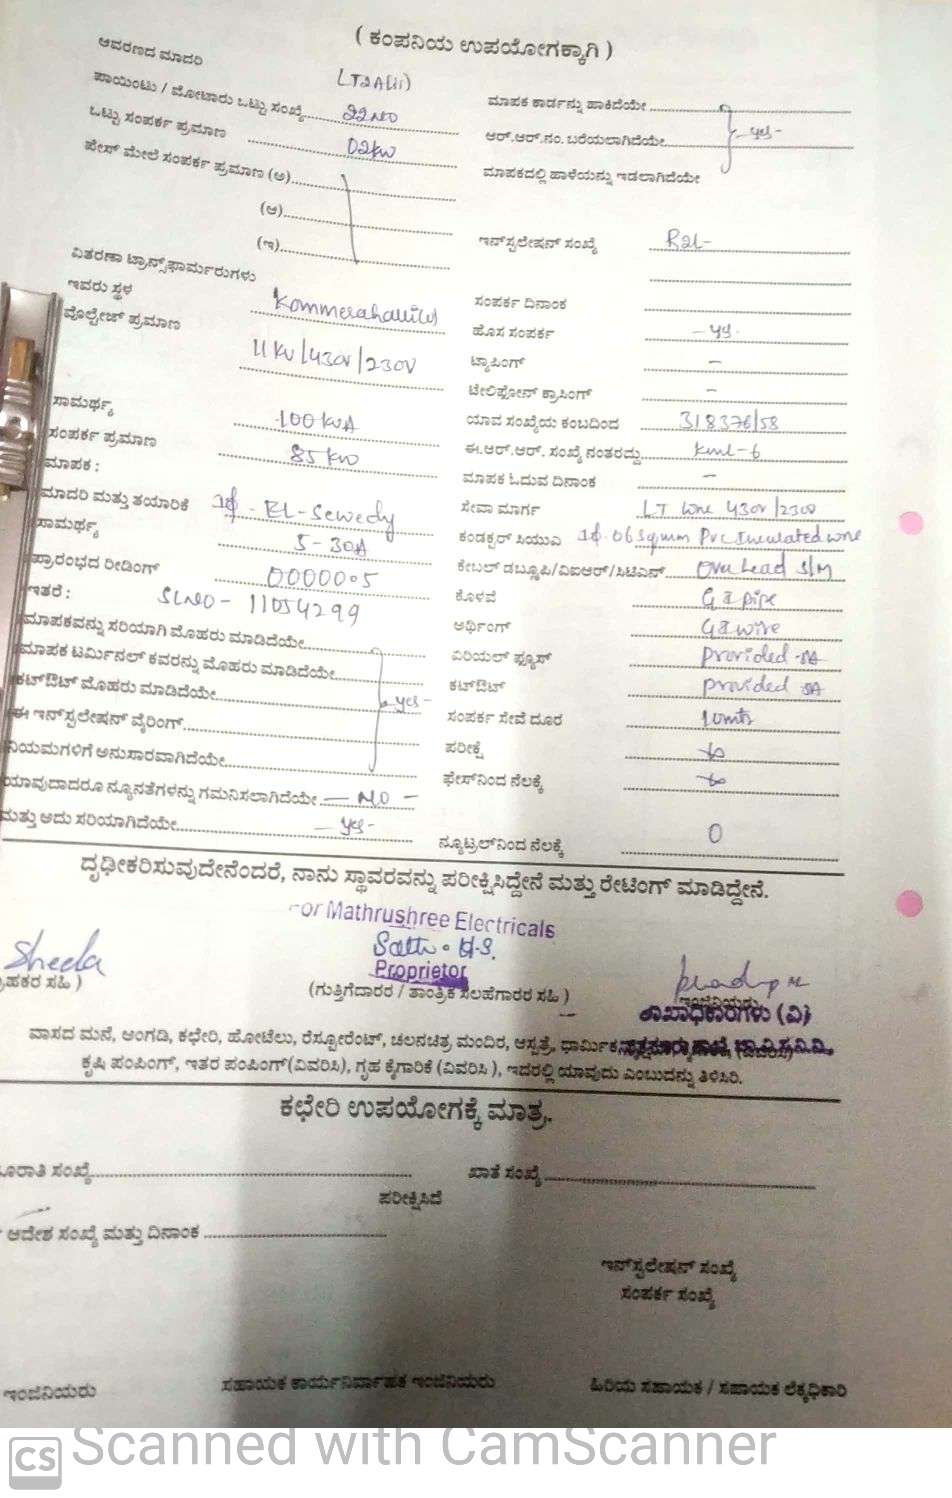 ( ಕಂಪನಿಯ ಉಪಯೋಗಕ್ಕಾಗಿ )
ಆವರಣದ ಮಾದರಿ LT2A(ii)
ಪಾಯಿಂಟು / ಮೋಟಾರು ಒಟ್ಟು ಸಂಖ್ಯೆ 22NO
ಒಟ್ಟು ಸಂಪರ್ಕ ಪ್ರಮಾಣ 02KW
ಪೇಸ್ ಮೇಲೆ ಸಂಪರ್ಕ ಪ್ರಮಾಣ (ಅ)
(ಆ)
(ಇ)
ವಿತರಣಾ ಟ್ರಾನ್ಸ್‌ಫಾರ್ಮರುಗಳು
ಇವರು ಸ್ಥಳ Kommerahalli(v)
ವೋಲ್ಟೇಜ್ ಪ್ರಮಾಣ 11KV/430V/230V
ಸಾಮರ್ಥ್ಯ 100KVA
ಸಂಪರ್ಕ ಪ್ರಮಾಣ 85KW
ಮಾಪಕ :
ಮಾದರಿ ಮತ್ತು ತಯಾರಿಕೆ 1ϕ - EL-Sewedy
ಸಾಮರ್ಥ್ಯ 5-30A
ಪ್ರಾರಂಭದ ರೀಡಿಂಗ್ 0000005
ಇತರೆ : SLNO - 11054299
ಮಾಪಕವನ್ನು ಸರಿಯಾಗಿ ಮೊಹರು ಮಾಡಿದೆಯೇ
ಮಾಪಕ ಟರ್ಮಿನಲ್ ಕವರನ್ನು ಮೊಹರು ಮಾಡಿದೆಯೇ
ಕಟ್‌ಔಟ್ ಮೊಹರು ಮಾಡಿದೆಯೇ yes -
ಈ ಇನ್‌ಸ್ಟಲೇಷನ್ ವೈರಿಂಗ್
ನಿಯಮಗಳಿಗೆ ಅನುಸಾರವಾಗಿದೆಯೇ
ಯಾವುದಾದರೂ ನ್ಯೂನತೆಗಳನ್ನು ಗಮನಿಸಲಾಗಿದೆಯೇ - NO -
ಮತ್ತು ಅದು ಸರಿಯಾಗಿದೆಯೇ - yes -
ಮಾಪಕ ಕಾರ್ಡನ್ನು ಹಾಕಿದೆಯೇ
ಆರ್.ಆರ್.ನಂ. ಬರೆಯಲಾಗಿದೆಯೇ - yes -
ಮಾಪಕದಲ್ಲಿ ಹಾಳೆಯನ್ನು ಇಡಲಾಗಿದೆಯೇ
ಇನ್‌ಸ್ಟಲೇಷನ್ ಸಂಖ್ಯೆ
ಸಂಪರ್ಕ ದಿನಾಂಕ
ಹೊಸ ಸಂಪರ್ಕ - yes -
ಟ್ಯಾಪಿಂಗ್ -
ಟೇಲಿಫೋನ್ ಕ್ರಾಸಿಂಗ್ -
ಯಾವ ಸಂಖ್ಯೆಯ ಕಂಬದಿಂದ 318376/58
ಈ.ಆರ್.ಆರ್. ಸಂಖ್ಯೆ ನಂತರದ್ದು kml-6
ಮಾಪಕ ಓದುವ ದಿನಾಂಕ -
ಸೇವಾ ಮಾರ್ಗ LT Line 430V/230V
ಕಂಡಕ್ಟರ್ ಸಿಯುವಿ 1ϕ 06 Sqmm Pvc Insulated wire
ಕೇಬಲ್ ಡಬ್ಲೂಪಿ/ಏಐಆರ್/ಸಿಟಿಎಸ್ Over head S/M
ಕೊಳವೆ GI pipe
ಅರ್ಥಿಂಗ್ GI wire
ಎರಿಯಲ್ ಫ್ಯೂಸ್ provided 5A
ಕಟ್‌ಔಟ್ provided 5A
ಸಂಪರ್ಕ ಸೇವೆ ದೂರ 10mts
ಪರೀಕ್ಷೆ
ಫೇಸ್‌ನಿಂದ ನೆಲಕ್ಕೆ
ನ್ಯೂಟ್ರಲ್‌ನಿಂದ ನೆಲಕ್ಕೆ 0
ದೃಢೀಕರಿಸುವುದೇನೆಂದರೆ, ನಾನು ಸ್ಥಾವರವನ್ನು ಪರೀಕ್ಷಿಸಿದ್ದೇನೆ ಮತ್ತು ರೇಟಿಂಗ್ ಮಾಡಿದ್ದೇನೆ.
For Mathrushree Electricals
Sheela
Proprietor
ಗ್ರಾಹಕರ ಸಹಿ )
(ಗುತ್ತಿಗೆದಾರರ / ತಾಂತ್ರಿಕ ಸಲಹೆಗಾರರ ಸಹಿ )
ಇಂಜಿನಿಯರು
ಶಾಖಾಧಿಕಾರಿಗಳು (ವಿ)
ವಾಸದ ಮನೆ, ಅಂಗಡಿ, ಕಛೇರಿ, ಹೋಟೆಲು, ರೆಸ್ಟೋರೆಂಟ್, ಚಲನಚಿತ್ರ ಮಂದಿರ, ಆಸ್ಪತ್ರೆ, ಧಾರ್ಮಿಕ
ಕೃಷಿ ಪಂಪಿಂಗ್, ಇತರ ಪಂಪಿಂಗ್(ವಿವರಿಸಿ), ಗೃಹ ಕೈಗಾರಿಕೆ (ವಿವರಿಸಿ ), ಇದರಲ್ಲಿ ಯಾವುದು ಎಂಬುದನ್ನು ತಿಳಿಸಿರಿ.
ಕಛೇರಿ ಉಪಯೋಗಕ್ಕೆ ಮಾತ್ರ.
ಸಂಖ್ಯೆ
ಖಾತೆ ಸಂಖ್ಯೆ
ಪರೀಕ್ಷಿಸಿದೆ
ಆದೇಶ ಸಂಖ್ಯೆ ಮತ್ತು ದಿನಾಂಕ
ಇನ್‌ಸ್ಟಲೇಷನ್ ಸಂಖ್ಯೆ
ಸಂಪರ್ಕ ಸಂಖ್ಯೆ
ಇಂಜಿನಿಯರು
ಸಹಾಯಕ ಕಾರ್ಯನಿರ್ವಾಹಕ ಇಂಜಿನಿಯರು
ಹಿರಿಯ ಸಹಾಯಕ / ಸಹಾಯಕ ಲೆಕ್ಕಧಿಕಾರಿ
CS Scanned with CamScanner